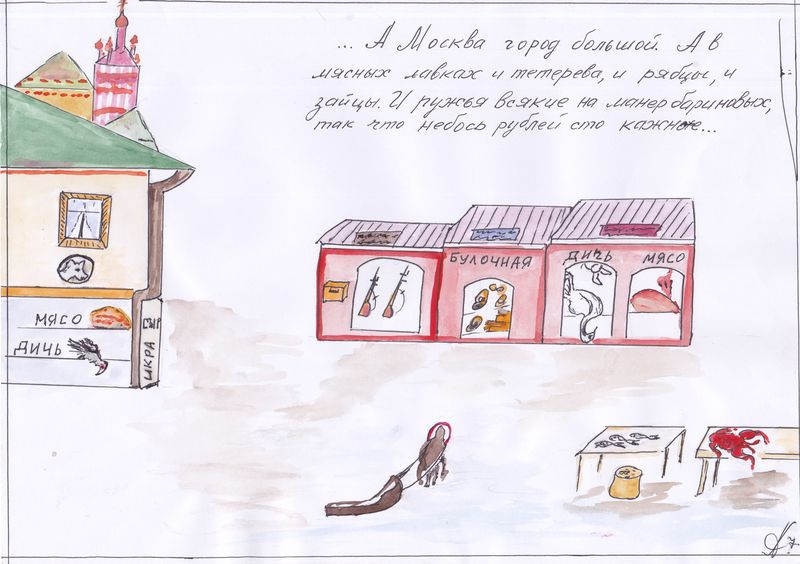 ... А Москва город большой. А в
мясных лавках и тетерева, и рябцы, и
зайцы. И ружья всякие на манер бариновых,
так что небось рублей сто кажное...
БУЛОЧНАЯ
ДИЧЬ
МЯСО
МЯСО
ДИЧЬ
СЫР
ИКРА